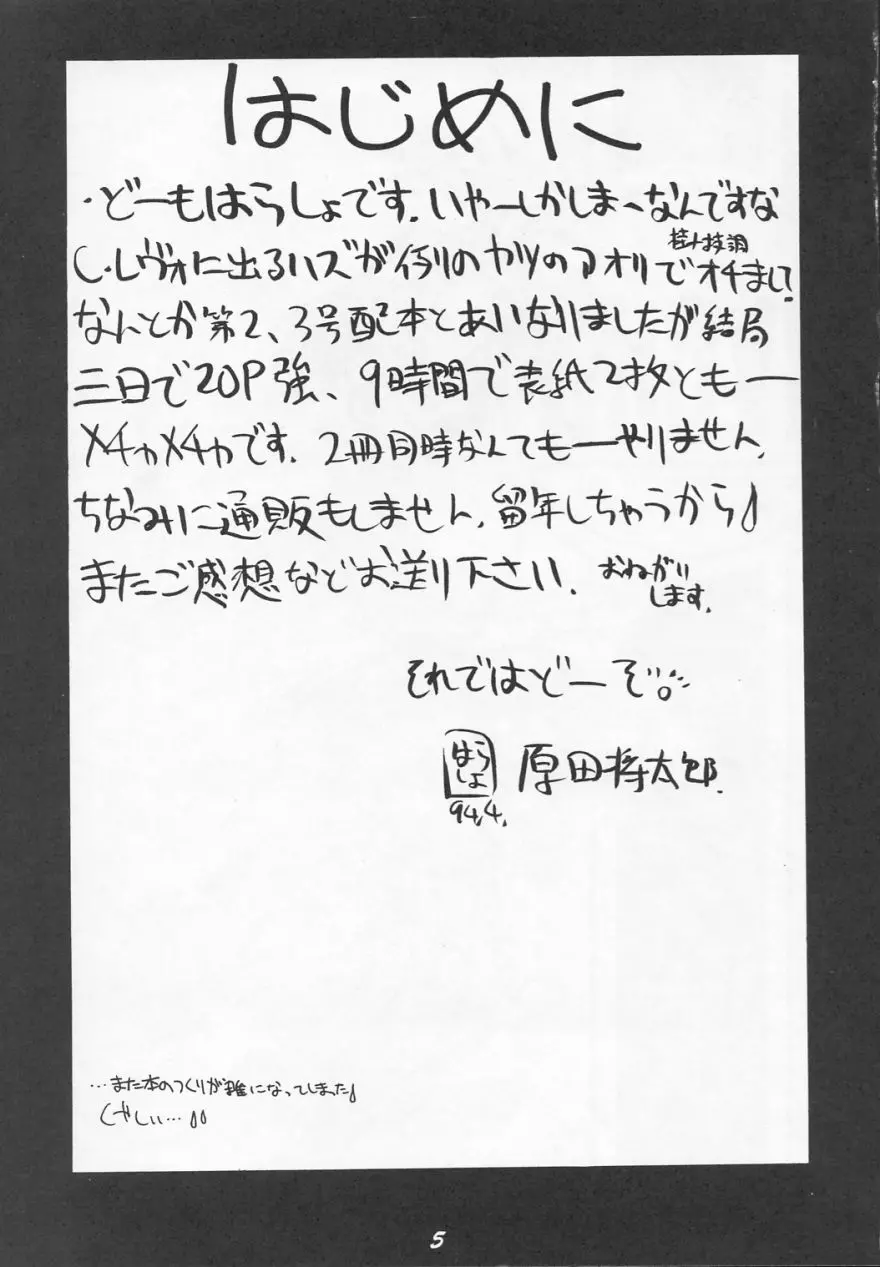 はじめに
・どーもはらしょです。いやーしかしまーなんですな
C・レヴォに出るハズが例のヤツのアオリでオチまして
なんとか第2、3号配本とあいなりましたが結局
三日で20P強、9時間で表紙2枚ともー
メチャメチャです。2冊同時なんてもーやりません。
ちなみに通販もしません。留年しちゃうから♪
またご感想などお送り下さい。おねがい
します。
それではどーぞ。
はらしょ
原田将太郎.
94,4.
…また本のつくりが雑になってしまった
くやしい…
5